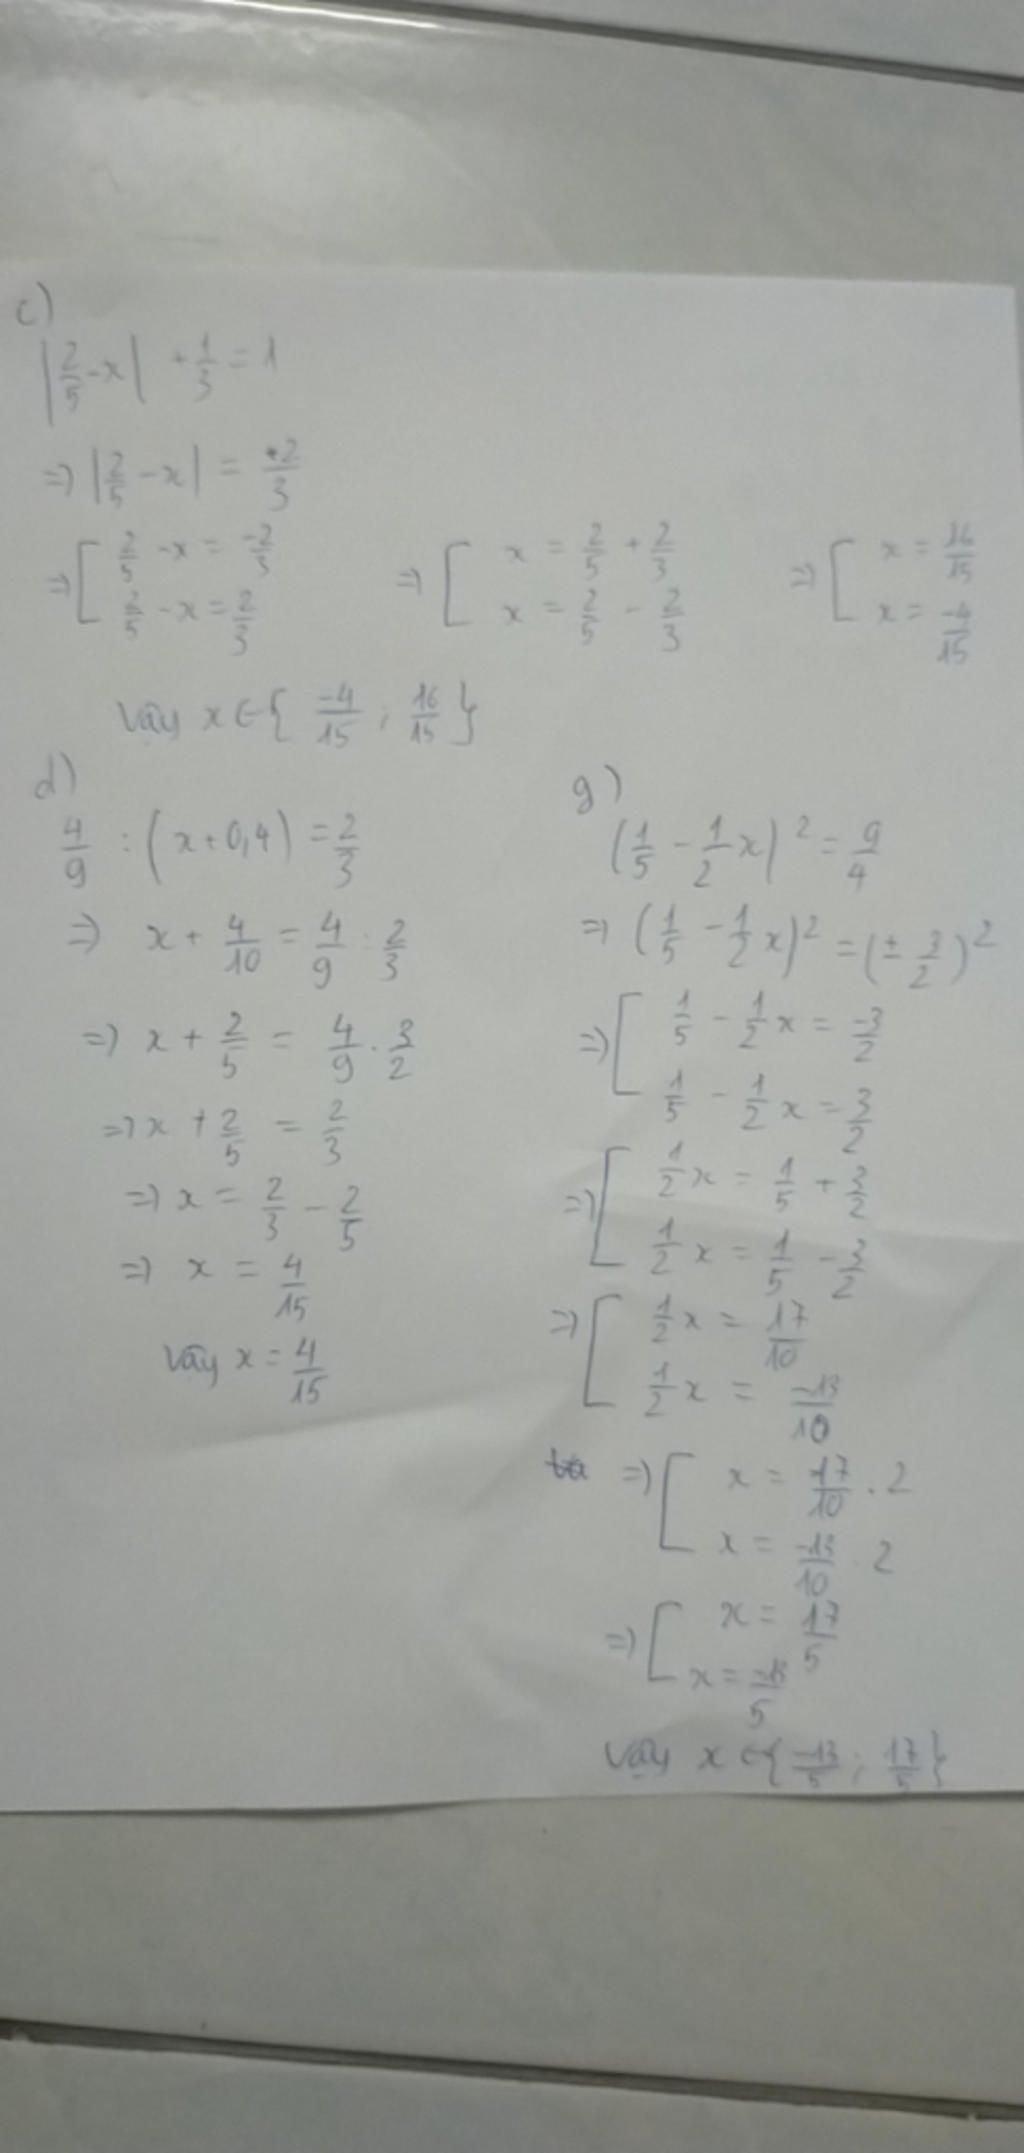 c)
|2/5 - x| + 1/3 = 1
=> |2/5 - x| = 2/3
=> [ 2/5 - x = -2/3 => [ x = 2/5 + 2/3 => [ x = 16/15
2/5 - x = 2/3 x = 2/5 - 2/3 x = -4/15
Vậy x ∈ { -4/15 ; 16/15 }
d)
4/9 : (x + 0,4) = 2/3
=> x + 4/10 = 4/9 : 2/3
=> x + 2/5 = 4/9 . 3/2
=> x + 2/5 = 2/3
=> x = 2/3 - 2/5
=> x = 4/15
Vậy x = 4/15
g)
(1/5 - 1/2 x)² = 9/4
=> (1/5 - 1/2 x)² = (± 3/2)²
=> [ 1/5 - 1/2 x = -3/2
1/5 - 1/2 x = 3/2
=> [ 1/2 x = 1/5 + 3/2
1/2 x = 1/5 - 3/2
=> [ 1/2 x = 17/10
1/2 x = -13/10
=> [ x = 17/10 . 2
x = -13/10 . 2
=> [ x = 17/5
x = -13/5
Vậy x ∈ { -13/5 ; 17/5 }